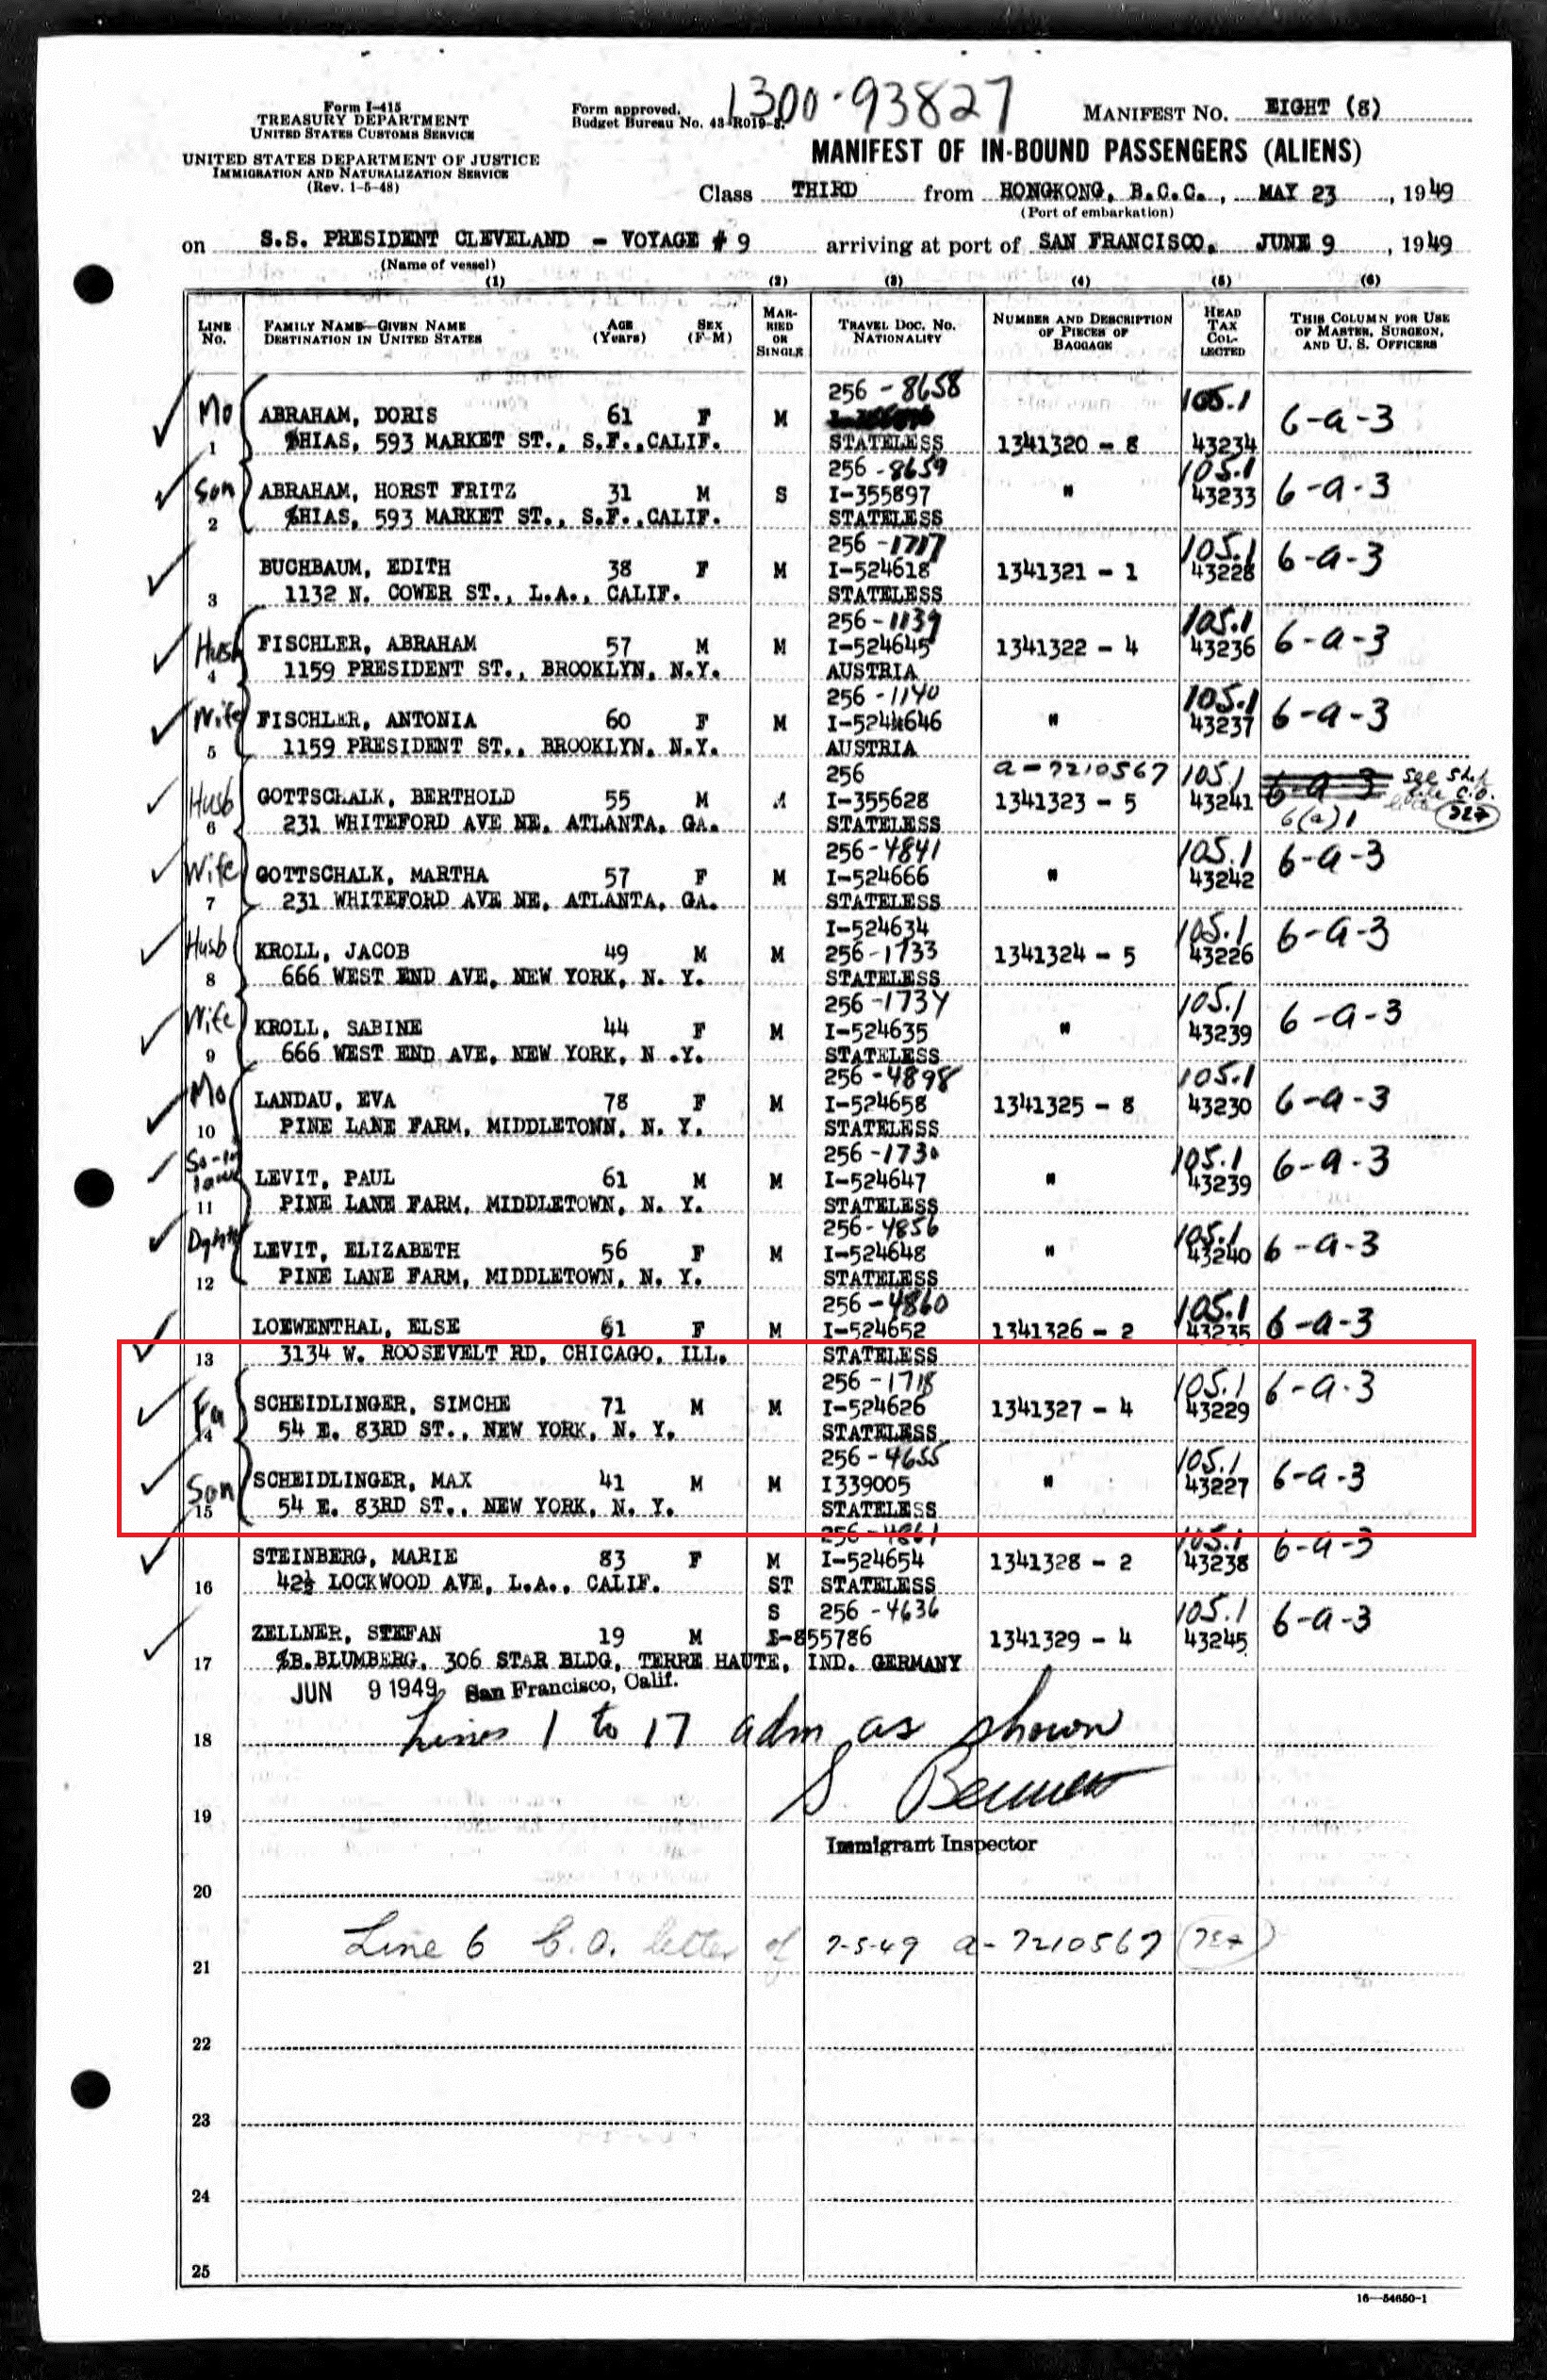 Form I-415
TREASURY DEPARTMENT
UNITED STATES CUSTOMS SERVICE
UNITED STATES DEPARTMENT OF JUSTICE
IMMIGRATION AND NATURALIZATION SERVICE
(Rev. 1-5-48)
Form approved.
Budget Bureau No. 43-R019-3.
1300-93827
MANIFEST NO. EIGHT (8)
MANIFEST OF IN-BOUND PASSENGERS (ALIENS)
Class THIRD from HONGKONG, B.C.C., MAY 23, 1949
(Port of embarkation)
on S.S. PRESIDENT CLEVELAND - VOYAGE # 9 arriving at port of SAN FRANCISCO, JUNE 9, 1949
(Name of vessel)
(1) (2) (3) (4) (5) (6)
LINE No. FAMILY NAME—GIVEN NAME DESTINATION IN UNITED STATES AGE (Years) SEX (F-M) MARRIED OR SINGLE TRAVEL DOC. NO. NATIONALITY NUMBER AND DESCRIPTION OF PIECES OF BAGGAGE HEAD TAX COLLECTED THIS COLUMN FOR USE OF MASTER, SURGEON, AND U. S. OFFICERS
256 - 8658 105.1
Mo ABRAHAM, DORIS 61 F M 6-a-3
1 %HIAS, 593 MARKET ST., S.F.,CALIF. STATELESS 1341320 - 8 43234
256 - 8659 105.1
Son ABRAHAM, HORST FRITZ 31 M S I-355897 " 43233 6-a-3
2 %HIAS, 593 MARKET ST., S.F.,CALIF. STATELESS
256 - 1717 105.1
BUCHBAUM, EDITH 38 F M I-524618 1341321 - 1 43228 6-a-3
3 1132 N. COWER ST., L.A., CALIF. STATELESS
256 - 1139 105.1
Husb FISCHLER, ABRAHAM 57 M M I-524645 1341322 - 4 43236 6-a-3
4 1159 PRESIDENT ST., BROOKLYN, N.Y. AUSTRIA
256 - 1140 105.1
Wife FISCHLER, ANTONIA 60 F M I-524646 " 43237 6-a-3
5 1159 PRESIDENT ST., BROOKLYN, N.Y. AUSTRIA
256 a-7210567 105.1 6-a-3 see
Husb GOTTSCHALK, BERTHOLD 55 M M I-355628 1341323 - 5 43241 C.O.
6 231 WHITEFORD AVE NE, ATLANTA, GA. STATELESS 6(a)1
256-4841 105.1
Wife GOTTSCHALK, MARTHA 57 F M I-524666 " 43242 6-a-3
7 231 WHITEFORD AVE NE, ATLANTA, GA. STATELESS
I-524634 105.1
Husb KROLL, JACOB 49 M M 256-1733 1341324 - 5 43226 6-a-3
8 666 WEST END AVE, NEW YORK, N. Y. STATELESS
256-1734 105.1
Wife KROLL, SABINE 44 F M I-524635 " 43239 6-a-3
9 666 WEST END AVE, NEW YORK, N .Y. STATELESS
256-4898 105.1
Mo LANDAU, EVA 78 F M I-524658 1341325 - 8 43230 6-a-3
10 PINE LANE FARM, MIDDLETOWN, N. Y. STATELESS
256-1730 105.1
So-in law LEVIT, PAUL 61 M M I-524647 " 43239 6-a-3
11 PINE LANE FARM, MIDDLETOWN, N. Y. STATELESS
256-4856 105.1
LEVIT, ELIZABETH 56 F M I-524648 " 43240 6-a-3
12 PINE LANE FARM, MIDDLETOWN, N. Y. STATELESS
256-4860 105.1
LOEWENTHAL, ELSE 61 F M I-524652 1341326 - 2 43235 6-a-3
13 3134 W. ROOSEVELT RD, CHICAGO, ILL. STATELESS
256-1718 105.1
Fa SCHEIDLINGER, SIMCHE 71 M M I-524626 1341327 - 4 43229 6-a-3
14 54 E. 83RD ST., NEW YORK, N. Y. STATELESS
256-4655 105.1
Son SCHEIDLINGER, MAX 41 M M I339005 " 43227 6-a-3
15 54 E. 83RD ST., NEW YORK, N. Y. STATELESS
256-4861 105.1
STEINBERG, MARIE 83 F M I-524654 1341328 - 2 43238 6-a-3
16 42½ LOCKWOOD AVE, L.A., CALIF. ST STATELESS
S 256-4636 105.1
ZELLNER, STEFAN 19 M I-855786 1341329 - 4 43245 6-a-3
17 %B.BLUMBERG, 306 STAR BLDG, TERRE HAUTE, IND. GERMANY
JUN 9 1949 San Francisco, Calif.
18 Lines 1 to 17 adm as shown
19 S Bennett
Immigrant Inspector
20
21 Line 6 C.O. letter of 7-5-49 a-7210567
22
23
24
25
16—54650-1